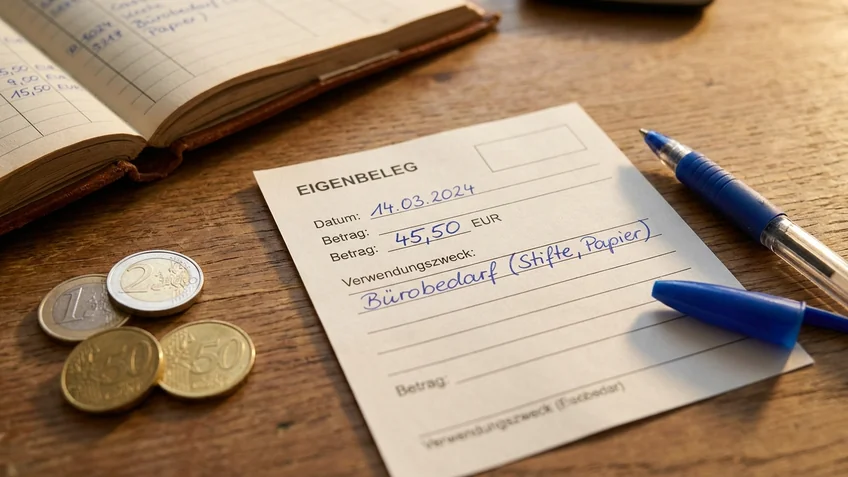 Bürobedarf (
Papier)
5,50
9,00
15,50
EIGENBELEG
Datum: 14.03.2024
Betrag:
Betrag: 45,50 EUR
Verwendungszweck:
Bürobedarf (Stifte, Papier)
Betrag:
Verwendungszweck
2
1
50
50